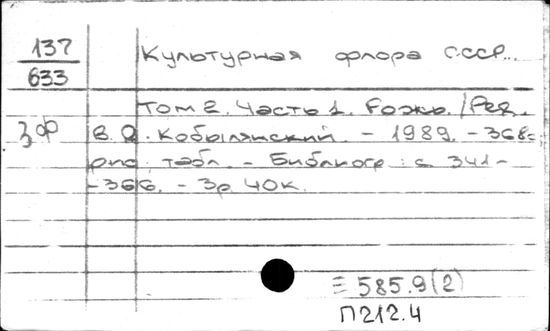 137
633
Культурная флора СССР...
Том 2. Часть 1. Рожь. / Ред.
3ф В. Д. Кобылянский. - 1989. - 368с.
рис., табл. - Библиогр.: с. 341-
-366. - 3р. 40к.
Ξ 585.9(2)
П212.4